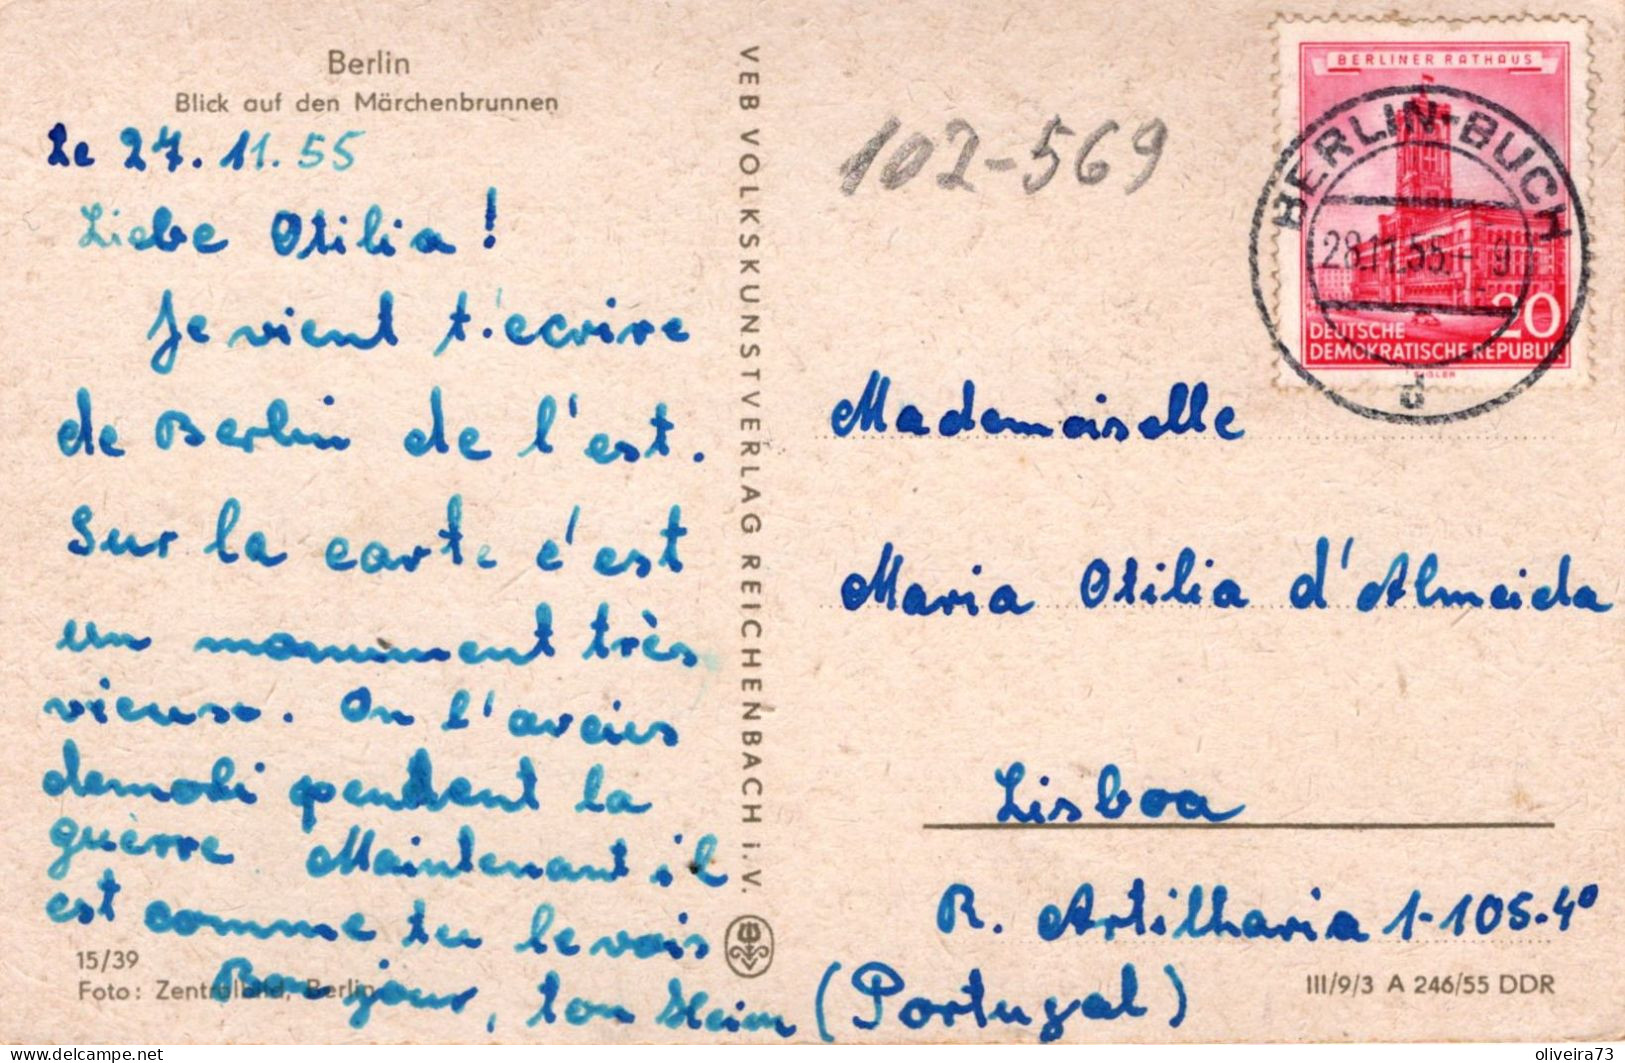 Berlin
Blick auf den Märchenbrunnen
Le 27.11.55
Liebe Otilia!
Je vient t'ecrire
de Berlin de l'est.
Sur la carte c'est
un monument très
vieuse. On l'avaies
demoli pendent la
guèrre. Maintenant il
est comme tu le vois
Bonjour, ton Heim
15/39
Foto: Zentralbild, Berlin
VEB VOLKSKUNSTVERLAG REICHENBACH i.V.
102-569
BERLINER RATHAUS
BERLIN-BUCH
28.11.55.-9
d
20
DEUTSCHE
DEMOKRATISCHE REPUBLIK
Mademoiselle
Maria Otilia d'Almeida
Lisboa
R. Artilharia 1-105-4º
(Portugal)
III/9/3 A 246/55 DDR
oliveira73